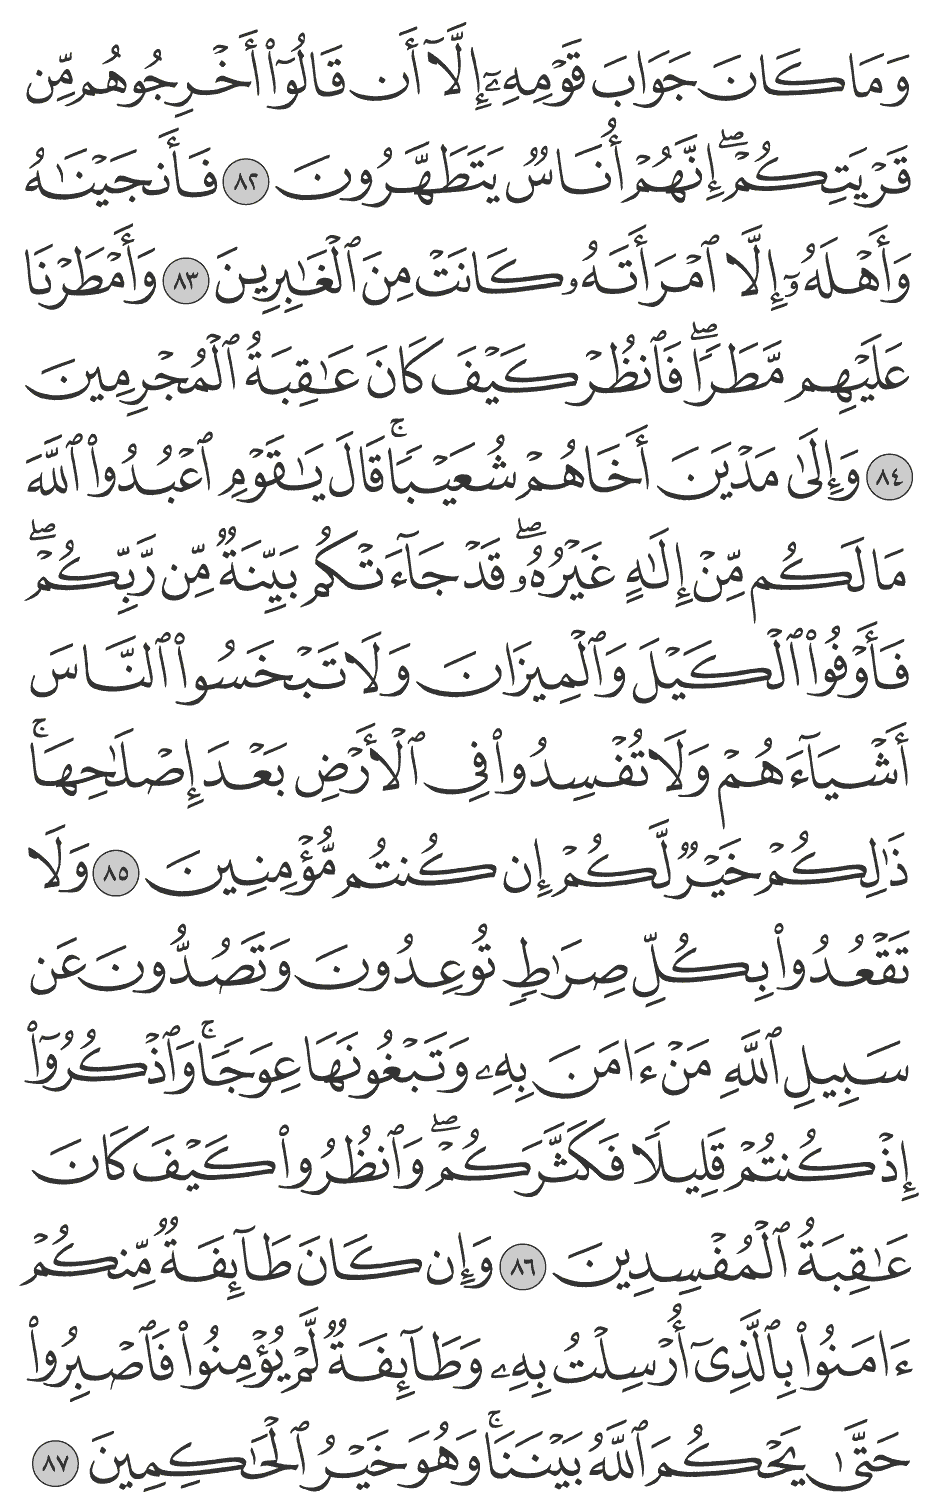 وَمَا كَانَ جَوَابَ قَوْمِهِۦٓ إِلَّآ أَن قَالُوٓا۟ أَخْرِجُوهُم مِّن
قَرْيَتِكُمْ ۖ إِنَّهُمْ أُنَاسٌ يَتَطَهَّرُونَ ٨٢ فَأَنجَيْنَـٰهُ
وَأَهْلَهُۥٓ إِلَّا ٱمْرَأَتَهُۥ كَانَتْ مِنَ ٱلْغَـٰبِرِينَ ٨٣ وَأَمْطَرْنَا
عَلَيْهِم مَّطَرًا ۖ فَٱنظُرْ كَيْفَ كَانَ عَـٰقِبَةُ ٱلْمُجْرِمِينَ
٨٤ وَإِلَىٰ مَدْيَنَ أَخَاهُمْ شُعَيْبًا ۚ قَالَ يَـٰقَوْمِ ٱعْبُدُوا۟ ٱللَّهَ
مَا لَكُم مِّنْ إِلَـٰهٍ غَيْرُهُۥ ۖ قَدْ جَآءَتْكُم بَيِّنَةٌ مِّن رَّبِّكُمْ ۖ
فَأَوْفُوا۟ ٱلْكَيْلَ وَٱلْمِيزَانَ وَلَا تَبْخَسُوا۟ ٱلنَّاسَ
أَشْيَآءَهُمْ وَلَا تُفْسِدُوا۟ فِى ٱلْأَرْضِ بَعْدَ إِصْلَـٰحِهَا ۚ
ذَٰلِكُمْ خَيْرٌ لَّكُمْ إِن كُنتُم مُّؤْمِنِينَ ٨٥ وَلَا
تَقْعُدُوا۟ بِكُلِّ صِرَٰطٍ تُوعِدُونَ وَتَصُدُّونَ عَن
سَبِيلِ ٱللَّهِ مَنْ ءَامَنَ بِهِۦ وَتَبْغُونَهَا عِوَجًا ۚ وَٱذْكُرُوٓا۟
إِذْ كُنتُمْ قَلِيلًا فَكَثَّرَكُمْ ۖ وَٱنظُرُوا۟ كَيْفَ كَانَ
عَـٰقِبَةُ ٱلْمُفْسِدِينَ ٨٦ وَإِن كَانَ طَآئِفَةٌ مِّنكُمْ
ءَامَنُوا۟ بِٱلَّذِىٓ أُرْسِلْتُ بِهِۦ وَطَآئِفَةٌ لَّمْ يُؤْمِنُوا۟ فَٱصْبِرُوا۟
حَتَّىٰ يَحْكُمَ ٱللَّهُ بَيْنَنَا ۚ وَهُوَ خَيْرُ ٱلْحَـٰكِمِينَ ٨٧